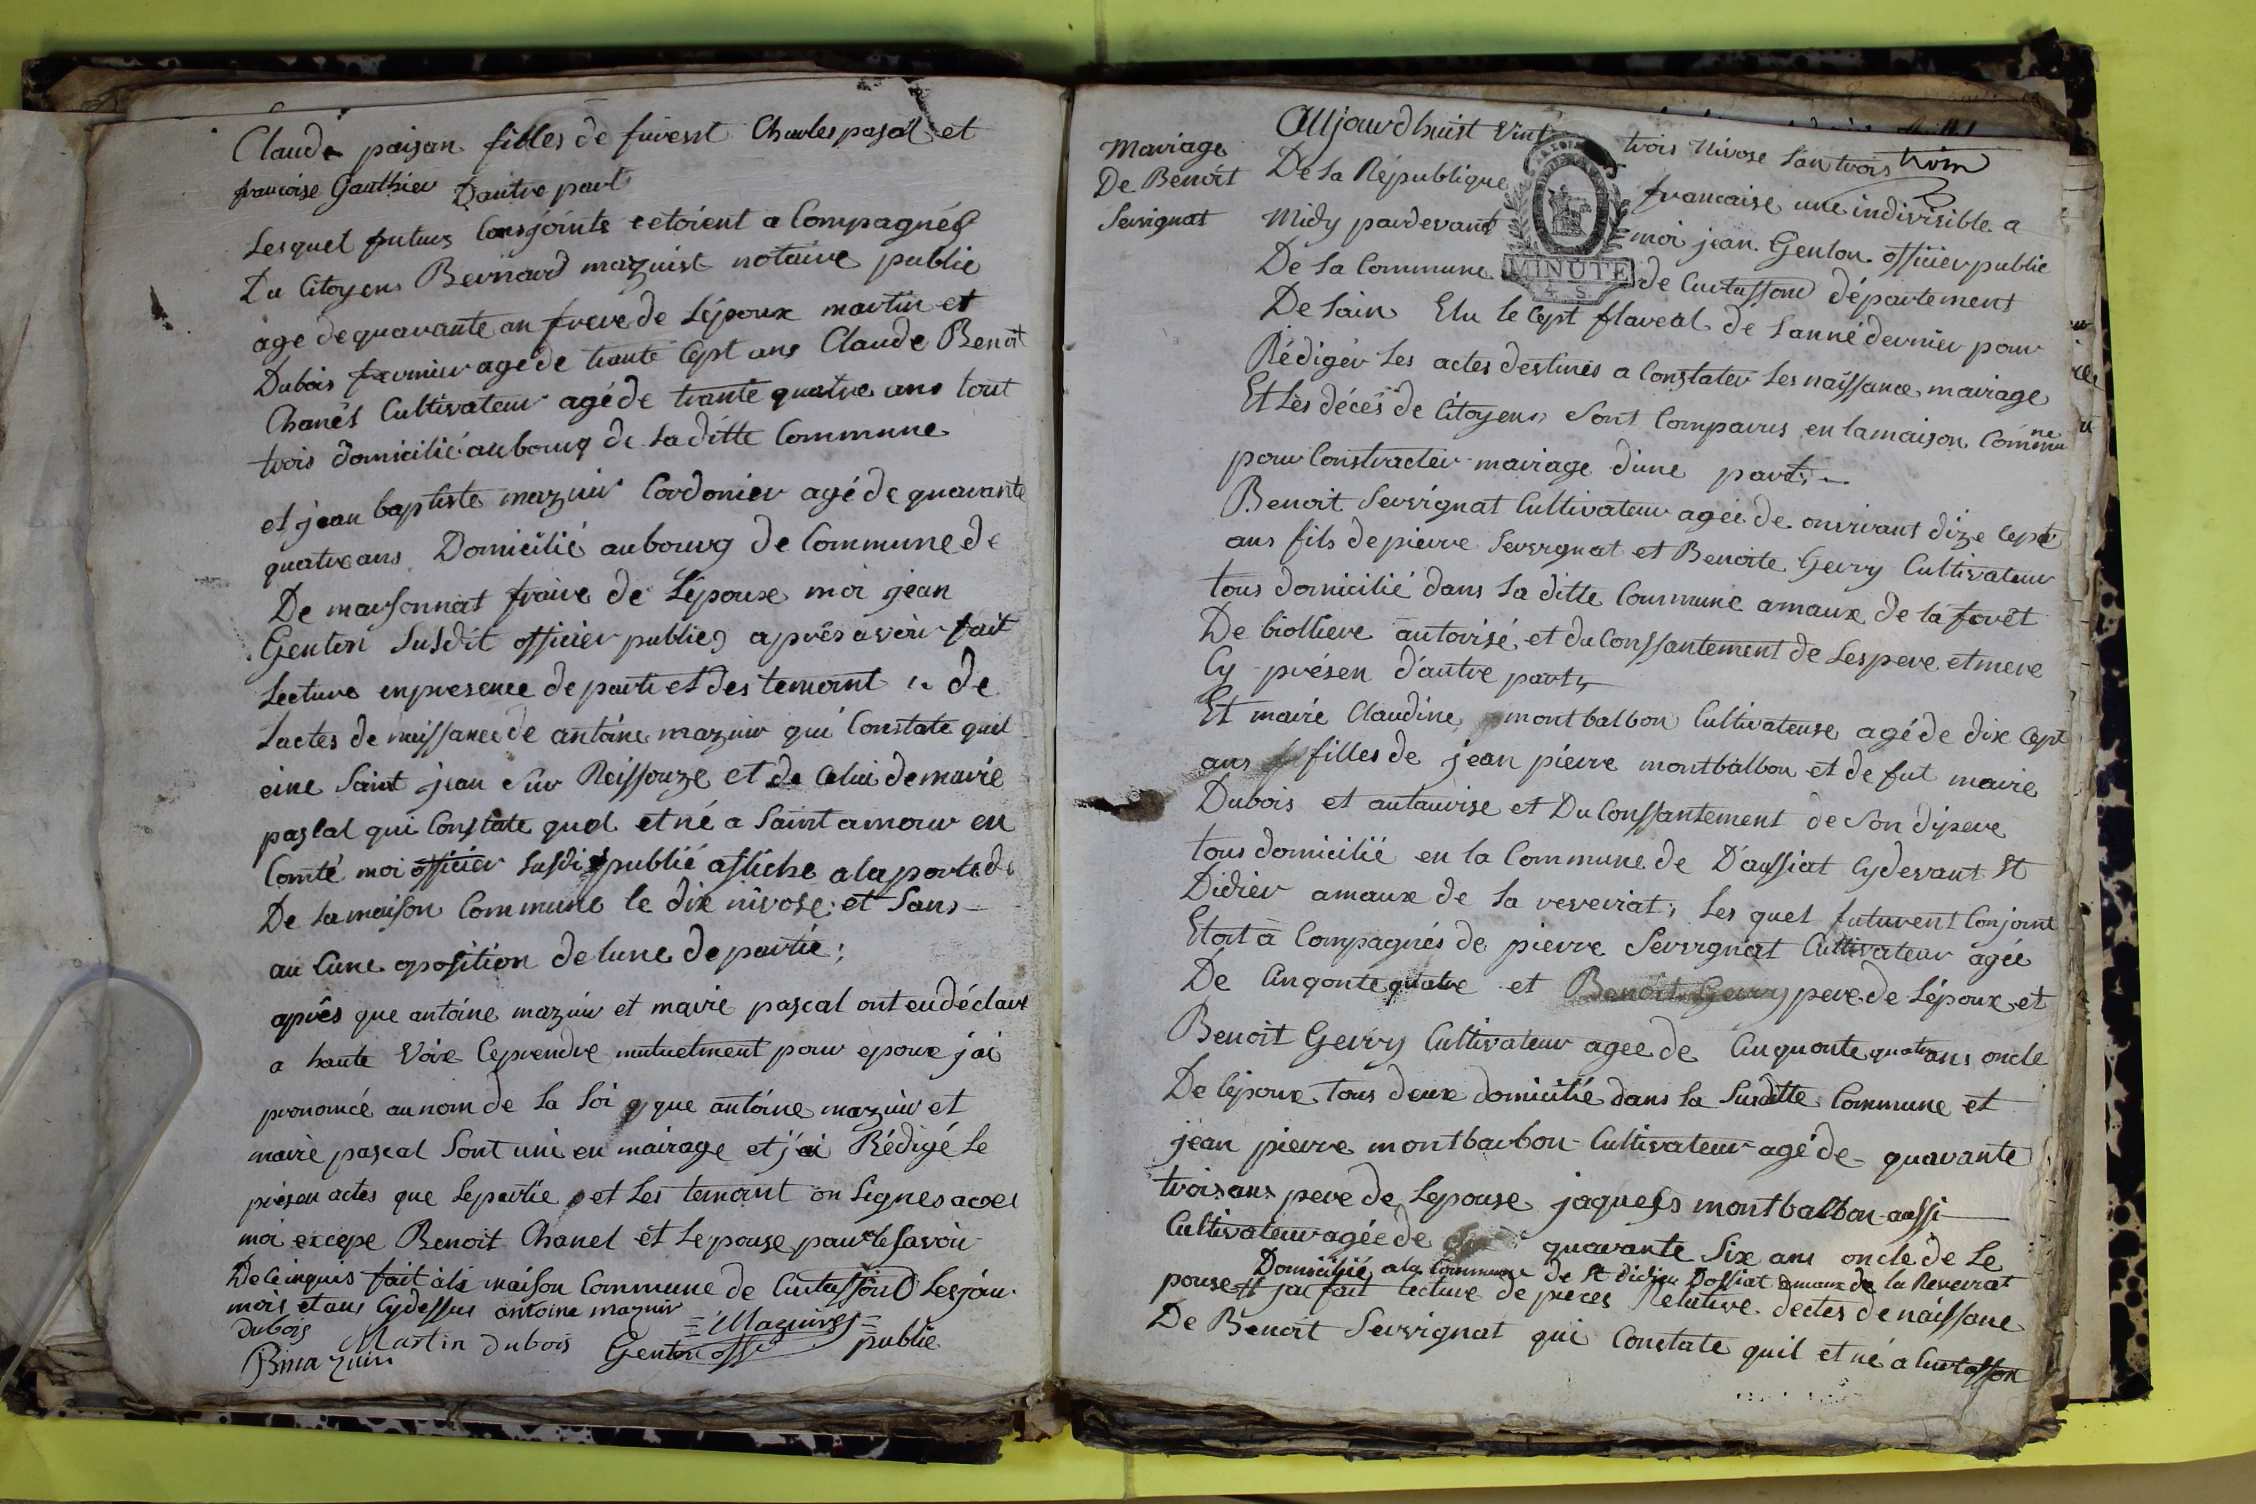 Claude paisan filles de fuirent Charles pasal et
francoise Gauthier D'autre part
Lesquel futurs Conjoints etoient a Compagnés
Du Citoyen Bernard mazuist notaire public
age de quarante an frere de Léjpoux martin et
Dubois fermier agé de trante Cept ans Claude Benoit
Chanel Cultivateur agé de trante quatre ans tout
trois domicilié au bourg de la ditte Commune
et jean baptiste mazuir Cordonier agé de quarante
quatre ans Domicilié au bourg de Commune de
De marsonnat fraire de Lépoux moi jean
Genton Susdit officier public après avoir fait
Lecture en presence de parti et des temoint de
Lactes de naissance de antoine mazuir qui Constate quil
eine Saint jean Sur Reissouze et de Celui de marie
paslal qui Constate quel et né a Saint amour en
Comté moi officier Susdit publié affiche a la porte de
De la maison Commune le dix nivose et Sans
au Cune oposition de lune de partie ;
après que antoine mazuir et marie pascal ont eu déclare
a haute Voix Ceprendre mutuelment pour epoux jai
prononcé au nom de La Loi que antoine mazuir et
marie pascal Sont uni en mairage et j'ai Rédigé Le
présen actes que Lepartie et Les temoint on Signes avec
moi excepe Benoit Chanel et Lepouse pour le Savoir
De Ce inquis fait à la maison Commune de Curtassond Les jour
mois et ans Cydessus antoine mazuir
dubois Martin dubois = Mazuiret =
Bmazuir Genton offi public
Mariage
De Benoit
Servignat
Aujourdhuist Vint trois Nivose Lan trois trois
De La République francaise une indivisible a
Midy pardevant moi jean Genton officier public
MINUTE
4 S
De La Commune de Curtassond département
De Lain Elu le Cept flaveal de Lanné dernier pour
Rédiger Les actes destinés a Constater Les naissance, mairage
Et Les décés de Citoyens Sont Comparus en la maison Commune
pour Constracter mairage d'une part
Benoit Servignat Cultivateur agée de onvirant dize Cept
ans fils de pierre Servignat et Benoite Gerry Cultivateur
tous domicilié dans La ditte Commune amaux de la forêt
De biolliere autorisé et du Conssantement de Les pere et mere
Cy présen d'autre part
Et marie Claudine montbalbon Cultivateuse agé de dix Cept
ans filles de jean pierre montbalbon et de fut marie
Dubois et autaurise et Du Conssantement de Son dipere
tous domicilié en la Commune de D'aussiat Cydevant St
Didier amaux de La reveirat ; Les quel futurent Conjoint
Etoit à Compagnés de pierre Servignat Cultivateur agée
De Cinqonte quatre et Benoit Gerry pere de Lépoux et
Benoit Gerry Cultivateur agee de Cinquonte quatre ans oncle
De lepoux tous deux domicilié dans la Susditte Commune et
jean pierre montbarbon Cultivateur agé de quarante
trois ans pere de Lepouse jaqueses montbalbon aussi
Cultivateur agée de quarante Six ans oncle de Le
Domicilié a la Commune de St didier Dossiat amaux de la Reveirat
pouse et jai fait lecture de pieces Relative dectes de naissance
De Benoit Servignat qui Constate quil et né a Curtasson